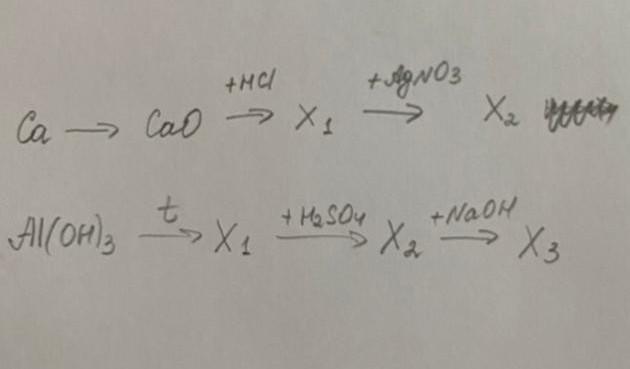 Ca → CaO +HCl → X₁ +AgNO₃ → X₂
Al(OH)₃ t → X₁ +H₂SO₄ → X₂ +NaOH → X₃